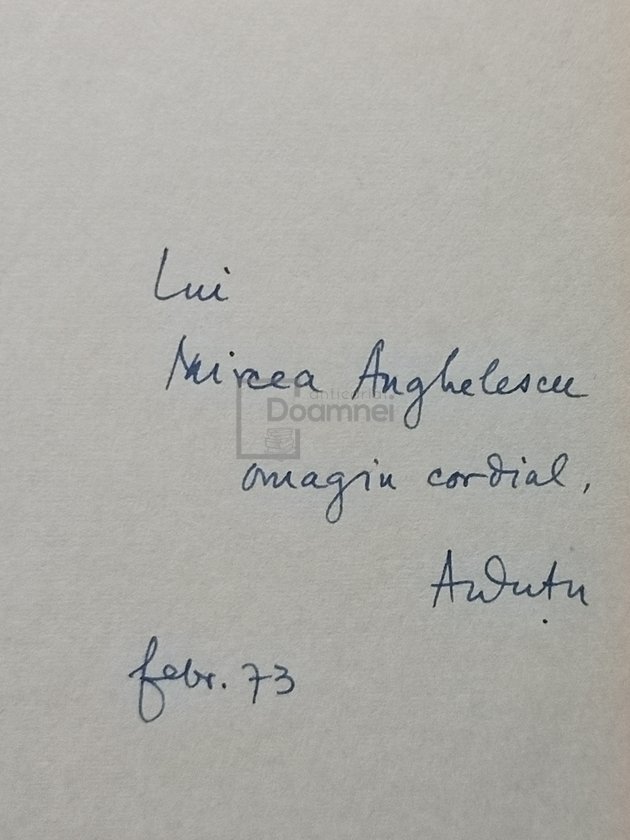 Lui
Mircea Anghelescu
anticariat
Doamnei
omagiu cordial,
febr. 73